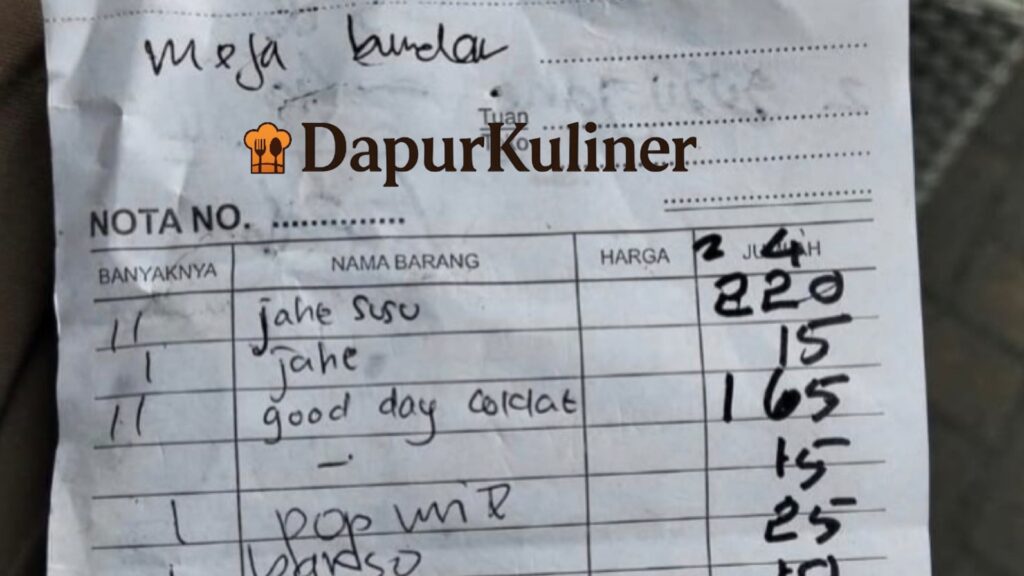 meja bundar
Tuan
DapurKuliner
NOTA NO. ..............
BANYAKNYA NAMA BARANG HARGA JUMLAH
2 4
11 jahe susu 220
1 jahe 15
11 good day coklat 165
— 15
1 pop mie 25
1 bakso